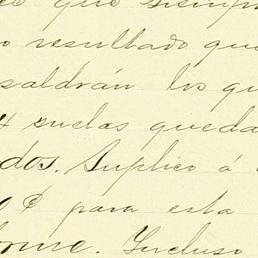 que siempr
o resultado que
saldrán los qu
4 suelas queda
dos. Suplico á
0 ¢ para esta
forme. Incluso